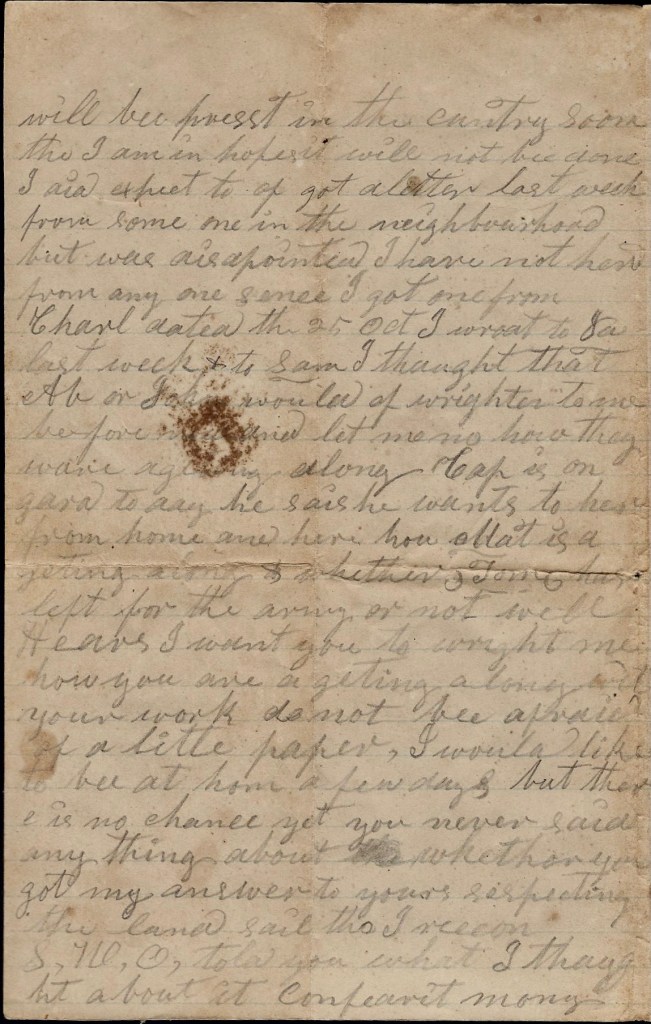 will bee presst in the cuntry soon
the I am in hopes it will not bee done
I did expect to of got a letter last week
from some one in the neighbourhood
but was disapointed I have not hern
from any one sence I got one from
Charl dated the 25 Oct I wroat to
last week & to Sam I thaught that
Ab or would of wrighten to me
before and let me no how they
ware along Cap is on
gard to day he sais he wants to her
from home and here how Mat is a
geting along & whether Tom has
left for the army or not well
Hears I want you to wright me
how you are a geting along
your work do not bee afraid
of a little paper, I would like
to bee at hom a few days but ther
e is no chance yet you never said
any thing about whether you
got my answer to yours respecting
the land sail tho I reccon
told you what I thaug
ht about it Confearit mony